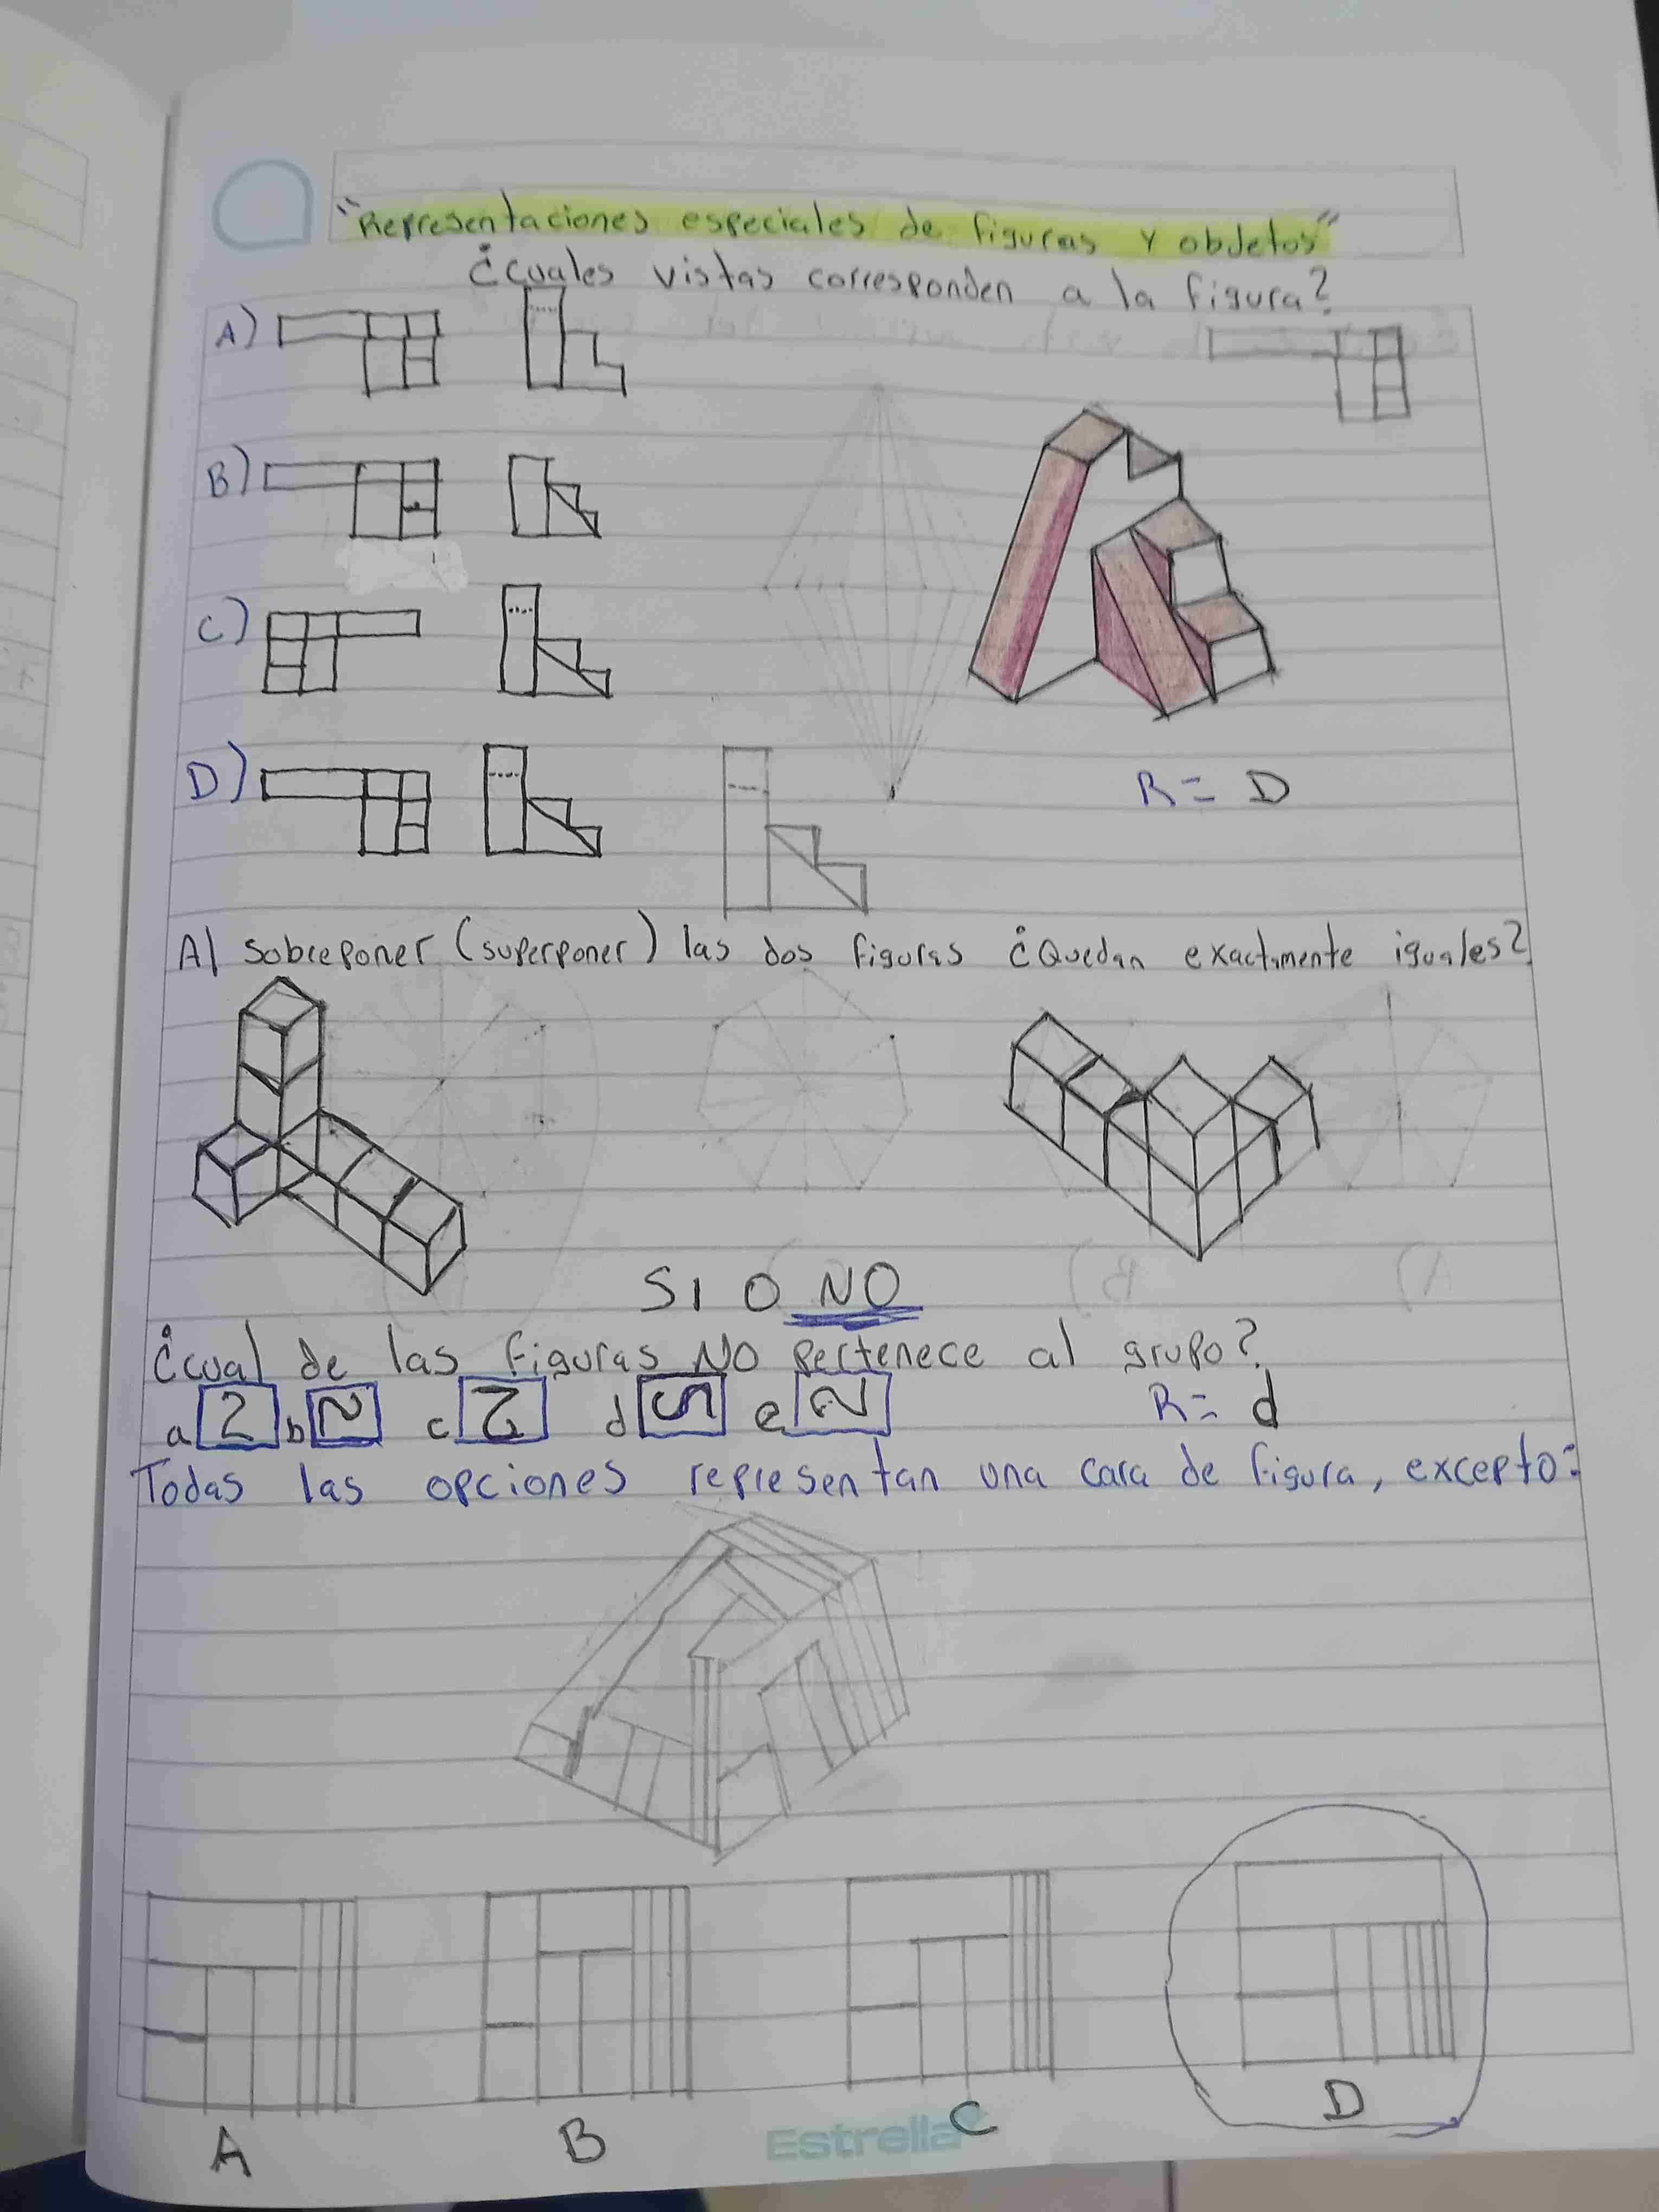 "Representaciones especiales de figuras y objetos"
¿cuales vistas corresponden a la figura?
A)
B)
C)
D)
R= D
Al sobreponer (superponer) las dos figuras ¿Quedan exactamente iguales?
SI O NO
¿cual de las figuras NO pertenece al grupo?
a 2 b 2 c 2 d S e 2 R= d
Todas las opciones representan una cara de figura, excepto:
A B C D
Estrella